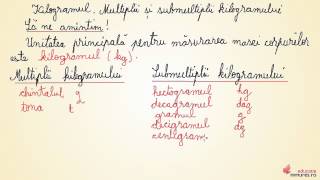 Kilogramul. Multiplii și submultiplii kilogramului
Să ne amintim!
Unitatea principală pentru măsurarea masei corpurilor
este kilogramul (kg).
Multiplii kilogramului
chintalul q
tona t
Submultiplii kilogramului
hectogramul hg
decagramul dag
gramul g
decigramul dg
centigram
educatie
INTUITEXT.RO